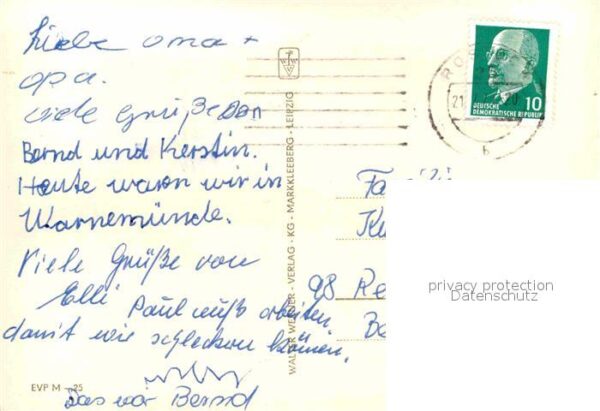 Liebe Oma +
Opa.
viele Grüße von
Bernd und Kerstin.
Heute waren wir in
Warnemünde.
Viele Grüße von
Elli Paul muß arbeiten,
damit wir schlecken können.
Das war Bernd
EVP M -,25
WALTER WERNER - VERLAG - KG - MARKKLEEBERG - LEIPZIG
DEUTSCHE
DEMOKRATISCHE REPUBLIK
10
RO
21.
20
b
Fa
Ku
98 Re
Ba
privacy protection
Datenschutz